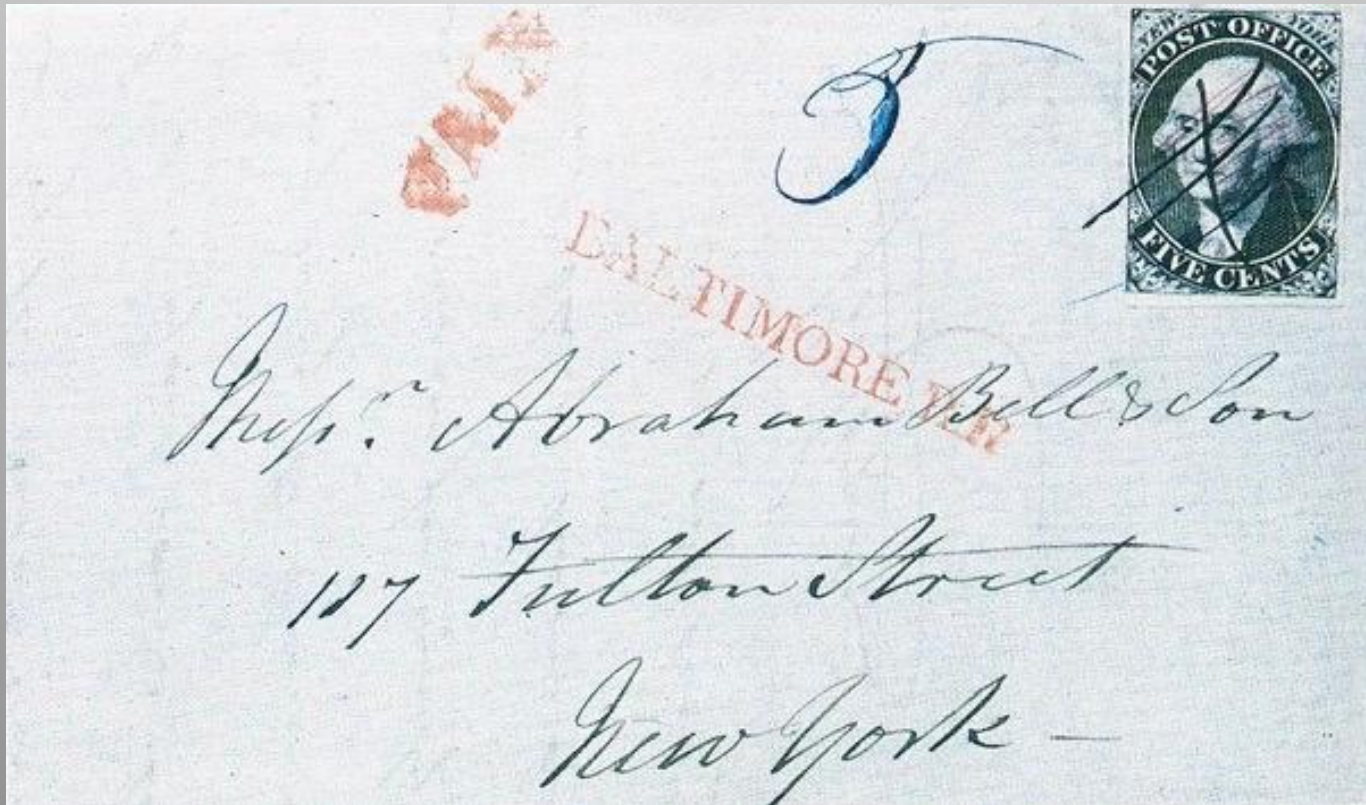 NEW YORK
POST OFFICE
FIVE CENTS
5
BALTIMORE R.R.
Messrs. Abraham Bell & Son
127 Fulton Street
New York